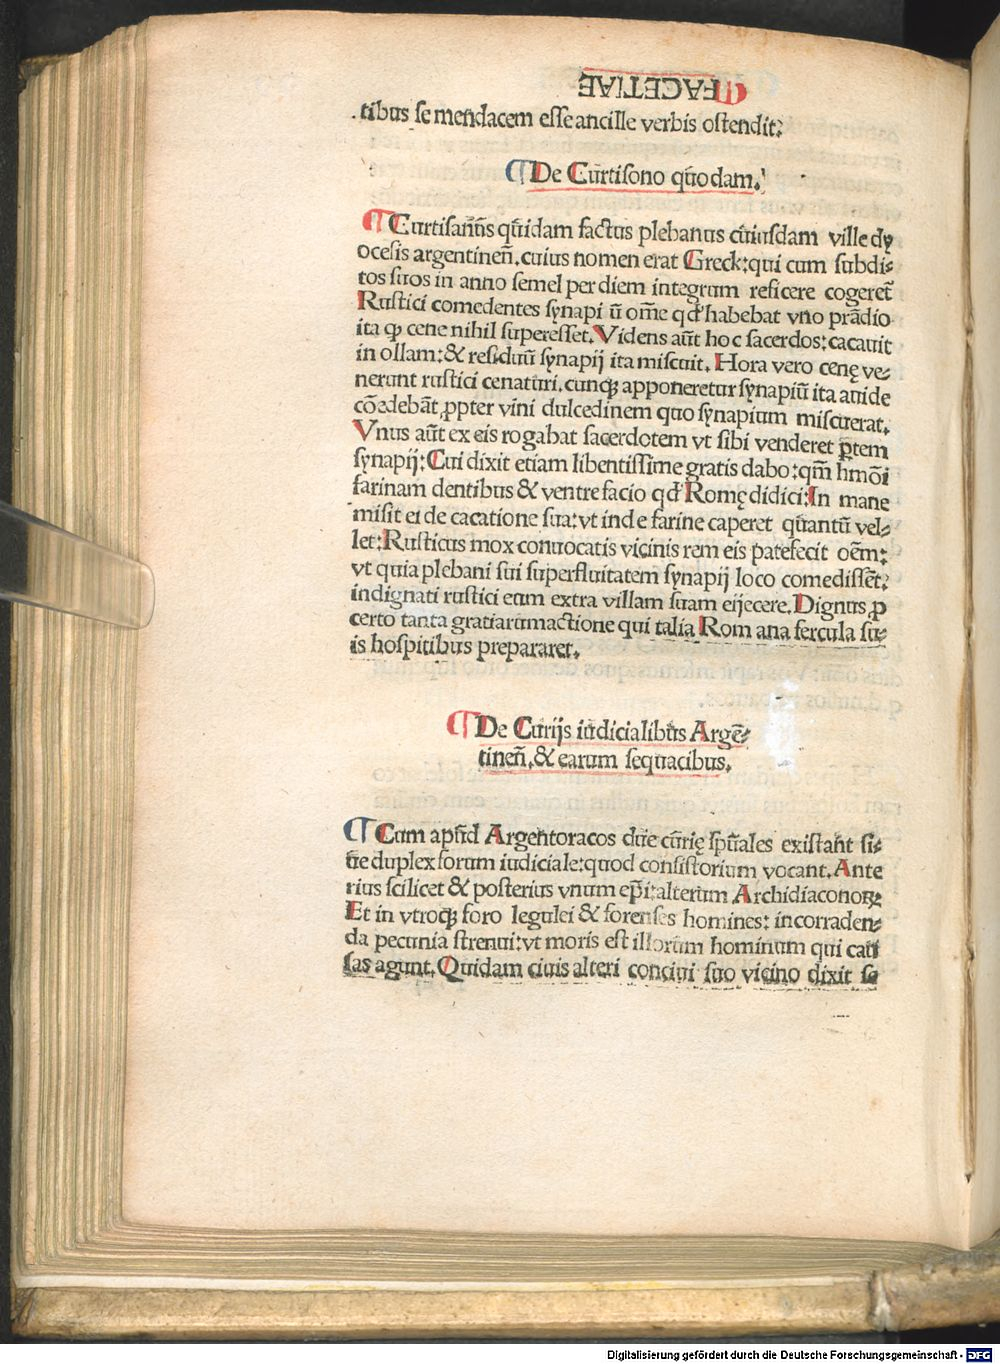 ¶FACETIAE
tibus se mendacem esse ancille verbis ostendit:
¶De Curtisono quodam.
¶Curtisanus quidam factus plebanus cuiusdam ville dy
ocesis argentineñ. cuius nomen erat Greck: qui cum subdi-
tos suos in anno semel per diem integrum reficere cogeret̃
Rustici comedentes synapi ũ om̃e qđ habebat vno prãdio
ita ꝙ cene nihil superesset. Videns aũt hoc sacerdos: cacauit
in ollam: & residuũ synapij ita miscuit. Hora vero cenę ve-
nerunt rustici cenaturi. cunqꝫ apponeretur synapiũ ita auide
cõedebãt ꝓpter vini dulcedinem quo synapium miscuerat.
Vnus aũt ex eis rogabat sacerdotem vt sibi venderet ꝑtem
synapij: Cui dixit etiam libentissime gratis dabo: qm̃ hmõi
farinam dentibus & ventre facio qđ Romę didici: In mane
misit ei de cacatione sua: vt inde farine caperet quantũ vel-
let: Rusticus mox conuocatis vicinis rem eis patefecit oẽm:
vt quia plebani sui superfluitatem synapij loco comedissẽt:
indignati rustici eum extra villam suam eijecere. Dignus ꝓ
certo tanta gratiarumactione qui talia Romana fercula su-
is hospitibus prepararet.
¶De Curijs iudicialibus Argẽ-
tineñ. & earum sequacibus.
¶Cum apud Argentoracos due curię sp̃uales existant si-
ue duplex forum iudiciale: quod consistorium vocant. Ante
rius scilicet & posterius vnum ep̃i: alterum Archidiaconoꝝ
Et in vtroqꝫ foro legulei & forenses homines: in corraden-
da pecunia strenui: vt moris est illorum hominum qui cau
sas agunt. Quidam ciuis alteri conciui suo vicino dixit se
Digitalisierung gefördert durch die Deutsche Forschungsgemeinschaft - DFG